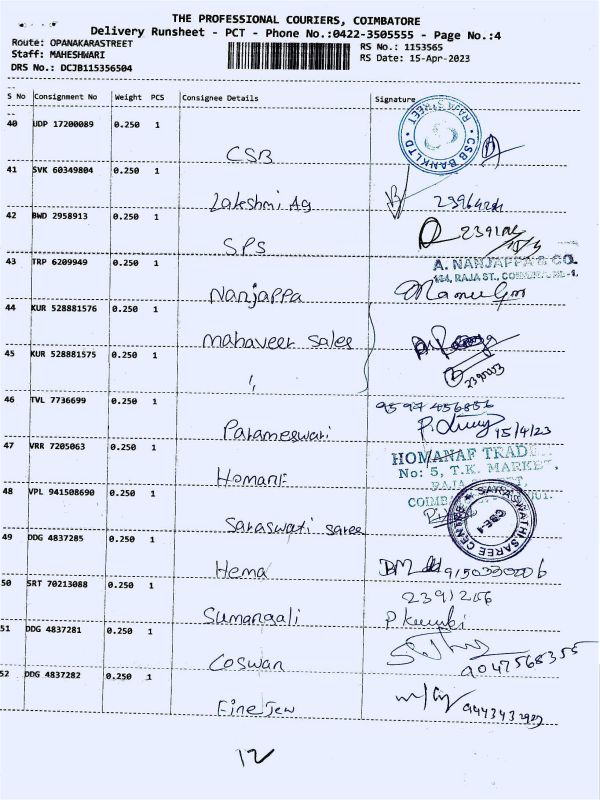 THE PROFESSIONAL COURIERS, COIMBATORE
Delivery Runsheet - PCT - Phone No.:0422-3505555 - Page No.:4
Route: OPANAKARASTREET
Staff: MAHESHWARI
DRS No.: DCJB115356504
RS No.: 1153565
RS Date: 15-Apr-2023
S No Consignment No Weight PCS Consignee Details Signature
40 UDP 17200089 0.250 1
CSB
CSB BANK LTD
41 SVK 60349804 0.250 1
Lakshmi Ag
42 BWD 2958913 0.250 1
SPS
43 TRP 6209949 0.250 1
Nanjappa
A. NANJAPPA & CO.
RAJA ST.,
44 KUR 528881576 0.250 1
mahaveer sales
45 KUR 528881575 0.250 1
"
46 TVL 7736699 0.250 1
Parameswari
15/4/23
47 VRR 7205063 0.250 1
HOMANAF
No: 5, T.K. MARKET,
48 VPL 941508690 0.250 1
Saraswati saree
SARASWATHI SAREE CENTRE
CBE-1
49 DDG 4837285 0.250 1
Hema
9150330206
50 SRT 70213088 0.250 1
Sumangali
2391266
51 DDG 4837281 0.250 1
Coswan
9047568355
52 DDG 4837282 0.250 1
Fine Jew
12